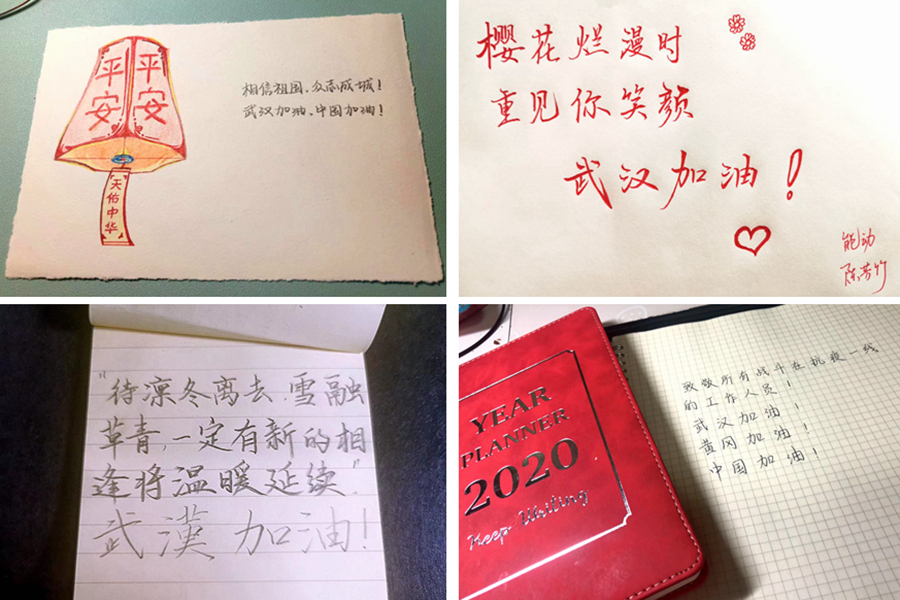 平安
平安
天佑中华
相信祖国，众志成城！
武汉加油、中国加油！
樱花烂漫时
重见你笑颜
武汉加油！
能动
陈芳竹
"待凛冬离去,雪融
草青,一定有新的相
逢将温暖延续"
武漢加油！
YEAR
PLANNER
2020
Keep Writing
致敬所有战斗在抗疫一线
的工作人员！
武汉加油！
黄冈加油！
中国加油！